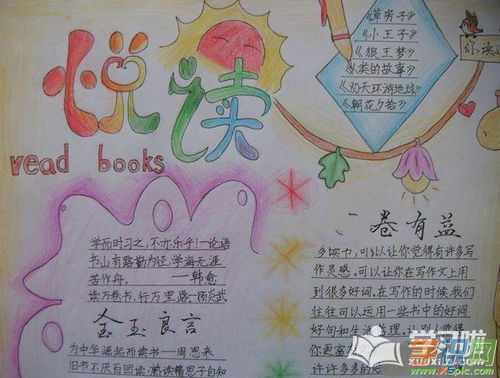 悦读
read books
学而时习之，不亦乐乎！一论语
书山有路勤为径，学海无涯
苦作舟。 ——韩愈
读万卷书，行万里路一顾炎武
金玉良言
为中华崛起而读书—周恩来
旧书不厌百回读，熟读精思子自知
《草房子》
《小王子》
《狼王梦》
《人类的故事》
《80天环游地球》
《朝花夕拾》
你读
卷有益
多读书，可以让你觉得有许多写
作灵感。可以让你在写作文上用
到很多好词。在写作的时候，我们
往往可以运用一些书中的好词
好句和生活哲理。让别人觉得
你更富
许许多多的
学习啦
xuexila.com